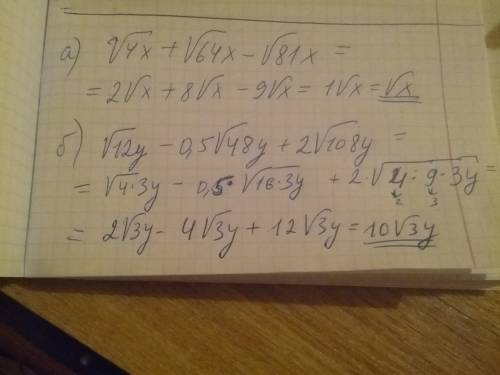 а) √4x + √64x - √81x =
= 2√x + 8√x - 9√x = 1√x = √x
б) √12y - 0,5√48y + 2√108y =
= √4·3y - 0,5·√16·3y + 2·√4·9·3y =
2 3
= 2√3y - 4√3y + 12√3y = 10√3y